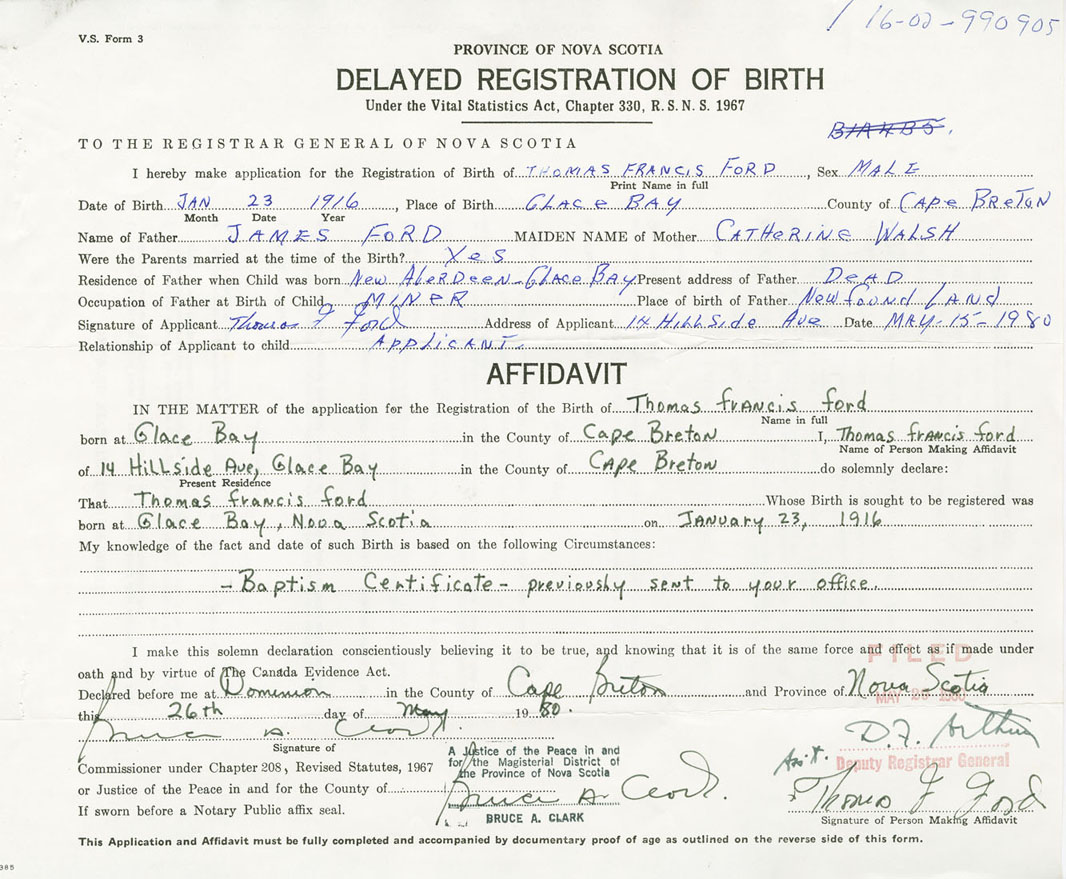 16-02-990905
V.S. Form 3
PROVINCE OF NOVA SCOTIA
DELAYED REGISTRATION OF BIRTH
Under the Vital Statistics Act, Chapter 330, R.S.N.S. 1967
TO THE REGISTRAR GENERAL OF NOVA SCOTIA
I hereby make application for the Registration of Birth of THOMAS FRANCIS FORD, Sex MALE
Print Name in full
Date of Birth JAN 23 1916, Place of Birth GLACE BAY County of CAPE BRETON
Month Date Year
Name of Father JAMES FORD MAIDEN NAME of Mother CATHERINE WALSH
Were the Parents married at the time of the Birth? Yes
Residence of Father when Child was born New Aberdeen-Glace Bay Present address of Father DeAD
Occupation of Father at Birth of Child MINER Place of birth of Father Newfound LAND
Signature of Applicant Thomas F Ford Address of Applicant 14 HillSide Ave Date MAY-15-1980
Relationship of Applicant to child APPLICANT.
AFFIDAVIT
IN THE MATTER of the application for the Registration of the Birth of Thomas francis ford
Name in full
born at Glace Bay in the County of Cape Breton I, Thomas francis ford
Name of Person Making Affidavit
of 14 Hillside Ave, Glace Bay in the County of Cape Breton do solemnly declare:
Present Residence
That Thomas francis ford Whose Birth is sought to be registered was
born at Glace Bay, Nova Scotia on January 23, 1916
My knowledge of the fact and date of such Birth is based on the following Circumstances:
- Baptism Certificate - previously sent to your office.
I make this solemn declaration conscientiously believing it to be true, and knowing that it is of the same force and effect as if made under
FILED
oath and by virtue of The Canada Evidence Act.
Declared before me at Dominion in the County of Cape Breton and Province of Nova Scotia
this 26th day of May 1980.
Bruce A. Clark
Signature of
D.F. Arthur
Asst. Deputy Registrar General
Commissioner under Chapter 208, Revised Statutes, 1967
or Justice of the Peace in and for the County of
If sworn before a Notary Public affix seal.
A Justice of the Peace in and
for the Magisterial District of
the Province of Nova Scotia
Bruce A. Clark
BRUCE A. CLARK
Thomas F Ford
Signature of Person Making Affidavit
This Application and Affidavit must be fully completed and accompanied by documentary proof of age as outlined on the reverse side of this form.
385